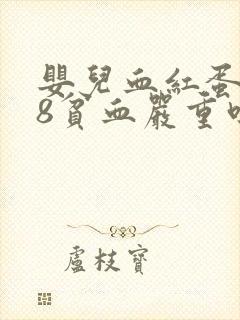 嬰兒血紅蛋
8貧血嚴重
盧枝寶